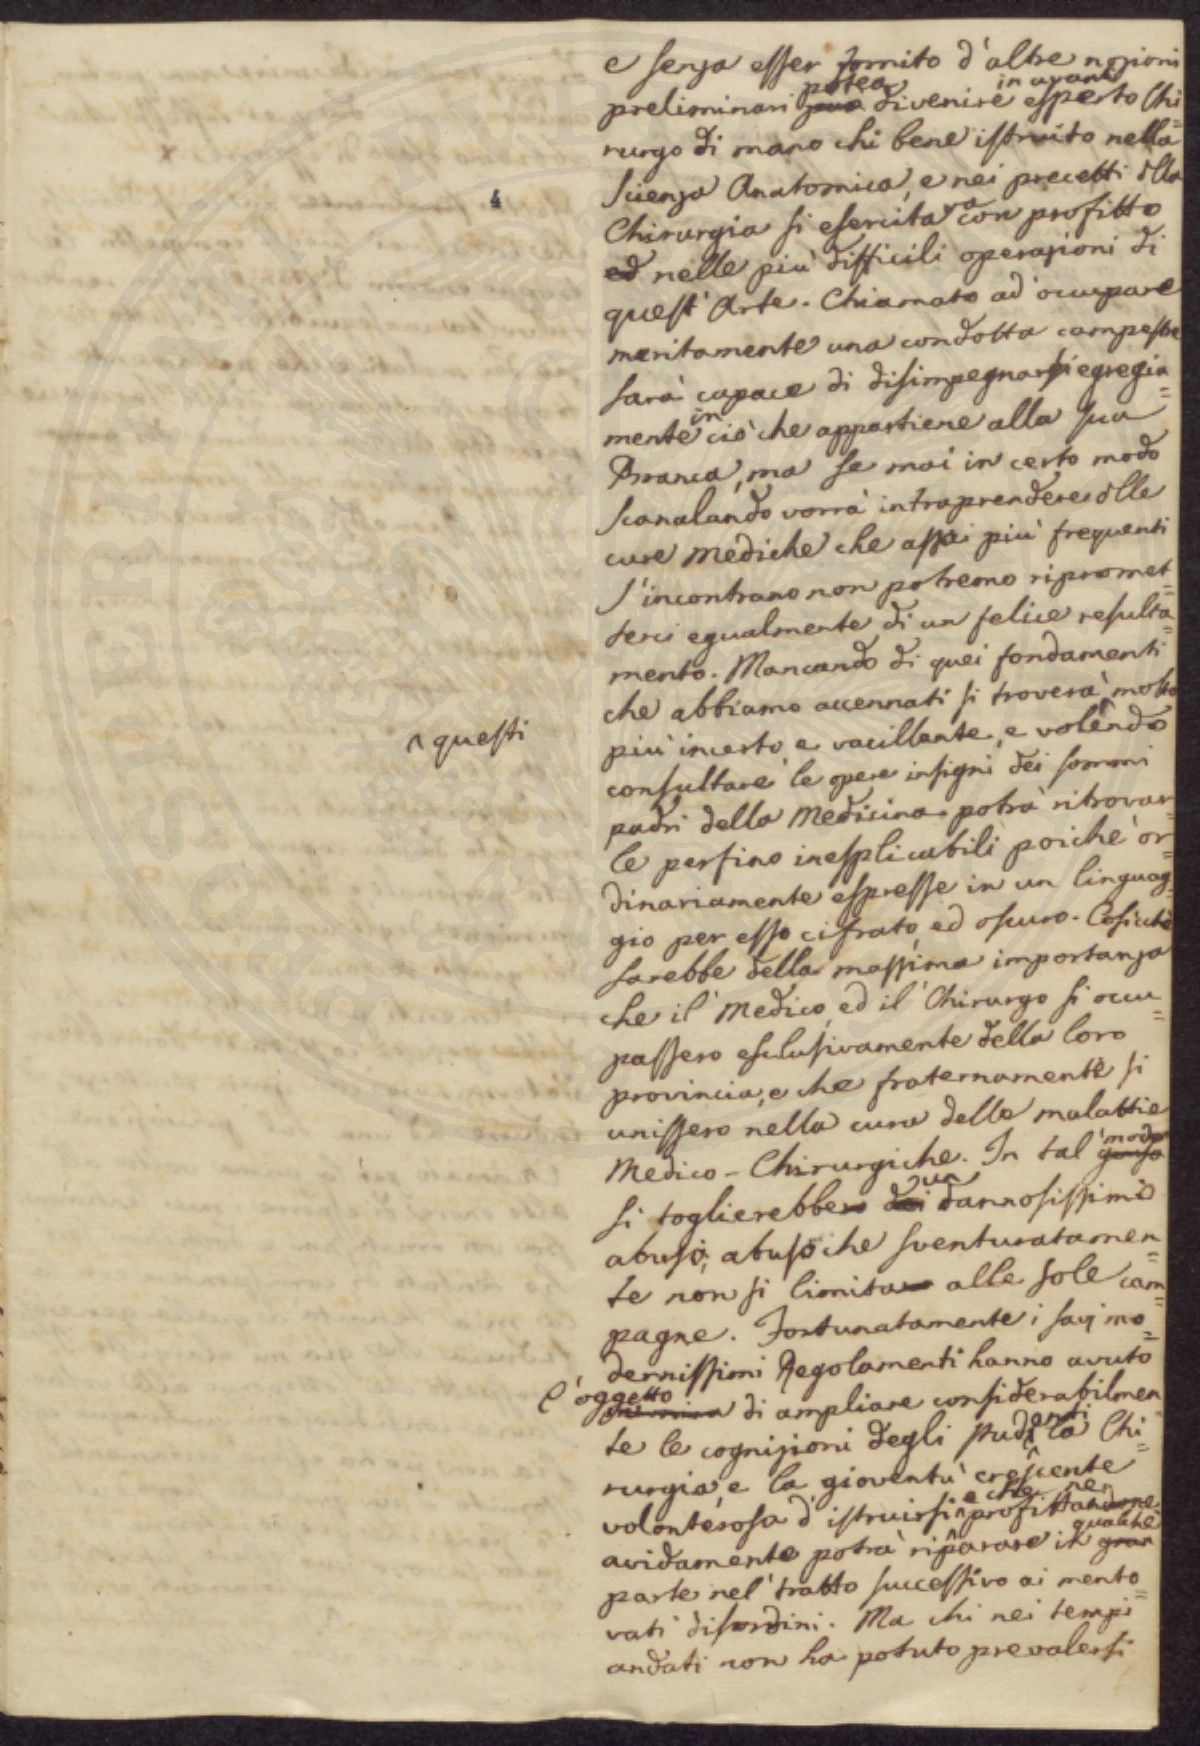 e senza esser fornito d'altre nozioni
preliminari può potea divenire in avanti esperto Chi=
rurgo di mano chi bene istruito nella
Scienza Anatomica, e nei precetti dlla
Chirurgia si esercitava con profitto
ed nelle più difficili operazioni di
quest'Arte. Chiamato ad ocupare
meritamente una condotta campestre
sarà capace di disimpegnarsi egregia=
mente in ciò che appartiene alla sua
Branca, ma se mai in certo modo
scanalando vorrà intraprendere dlle
cure mediche che assai più frequenti
s'incontrano non potremo ripromet=
terci egualmente di un felice resulta=
mento. Mancando di quei fondamenti
che abbiamo accennati si troverà molto
più incerto, e vacillante, e volendo
^ questi
consultare le opere insigni dei sommi
padri della Medicina potrà ritrovar=
le perfino inesplicabili poichè or=
dinariamente espresse in un linguag=
gio per esso cifrato, ed oscuro. Cosicchè
sarebbe della massima importanza
che il Medico, ed il Chirurgo si occu=
passero esclusivamente della loro
provincia, e che fraternamente si
unissero nella cura delle malattie
Medico-Chirurgiche. In tal guisa modo
si toglierebbero dei un dannosissimo
abuso, abuso che sventuratamen=
te non si limita alle sole cam=
pagne. Fortunatamente i savj mo=
dernissimi Regolamenti hanno avuto
l'oggetto di ampliare considerabilmen=
te le cognizioni degli studenti la Chi=
rurgia, e la gioventù crescente
volonterosa d'istruirsi ^ e che ne profittandone
avidamente potrà riparare in gran qualche
parte nel tratto successivo ai mento=
vati disordini. Ma chi nei tempi
andati non ha potuto prevalersi